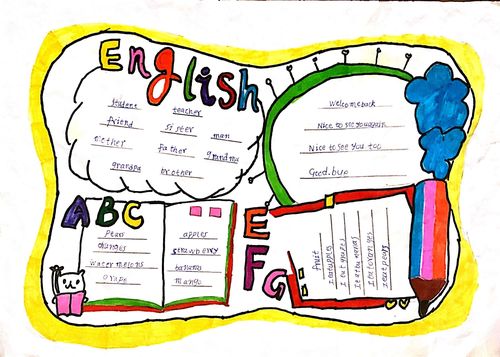 English
student teacher
friend sister man
mother father grandma
grandpa brother
Welcome back
Nice to see you again
Nice to see you too
Good.bye
ABC
pears
oranges
watermelons
grape
apples
strawberry
bananas
mango
EFG
fruit
I eat apples
I eat grapes
I eat bananas
I eat oranges
I eat pears